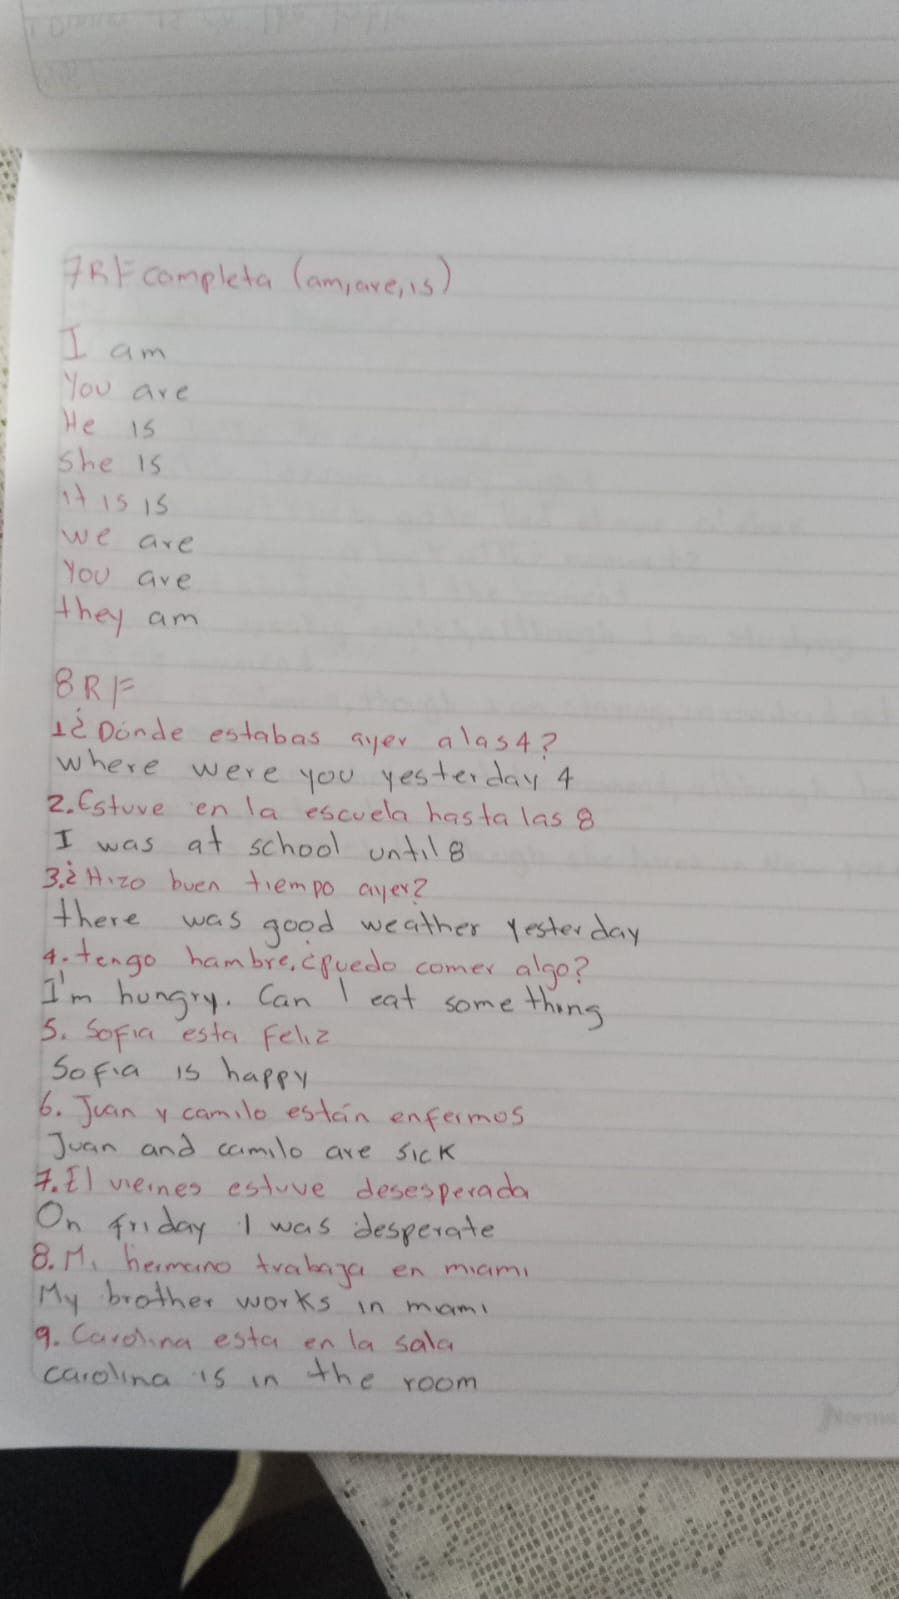 7R/= completa (am, are, is)
I am
You are
He is
she is
it is is
we are
You are
they am
8R/=
1¿Dónde estabas ayer alas 4?
where were you yesterday 4
2. Estuve en la escuela hasta las 8
I was at school until 8
3.¿Hizo buen tiempo ayer?
there was good weather yesterday
4. tengo hambre. ¿puedo comer algo?
I'm hungry. Can I eat some thing
5. Sofia esta Feliz
Sofia is happy
6. Juan y camilo están enfermos
Juan and camilo are sick
7. El vieines estuve desesperada
On friday I was desperate
8. Mi hermano trabaja en miami
My brother works in mami
9. Carolina esta en la sala
carolina is in the room
Norma